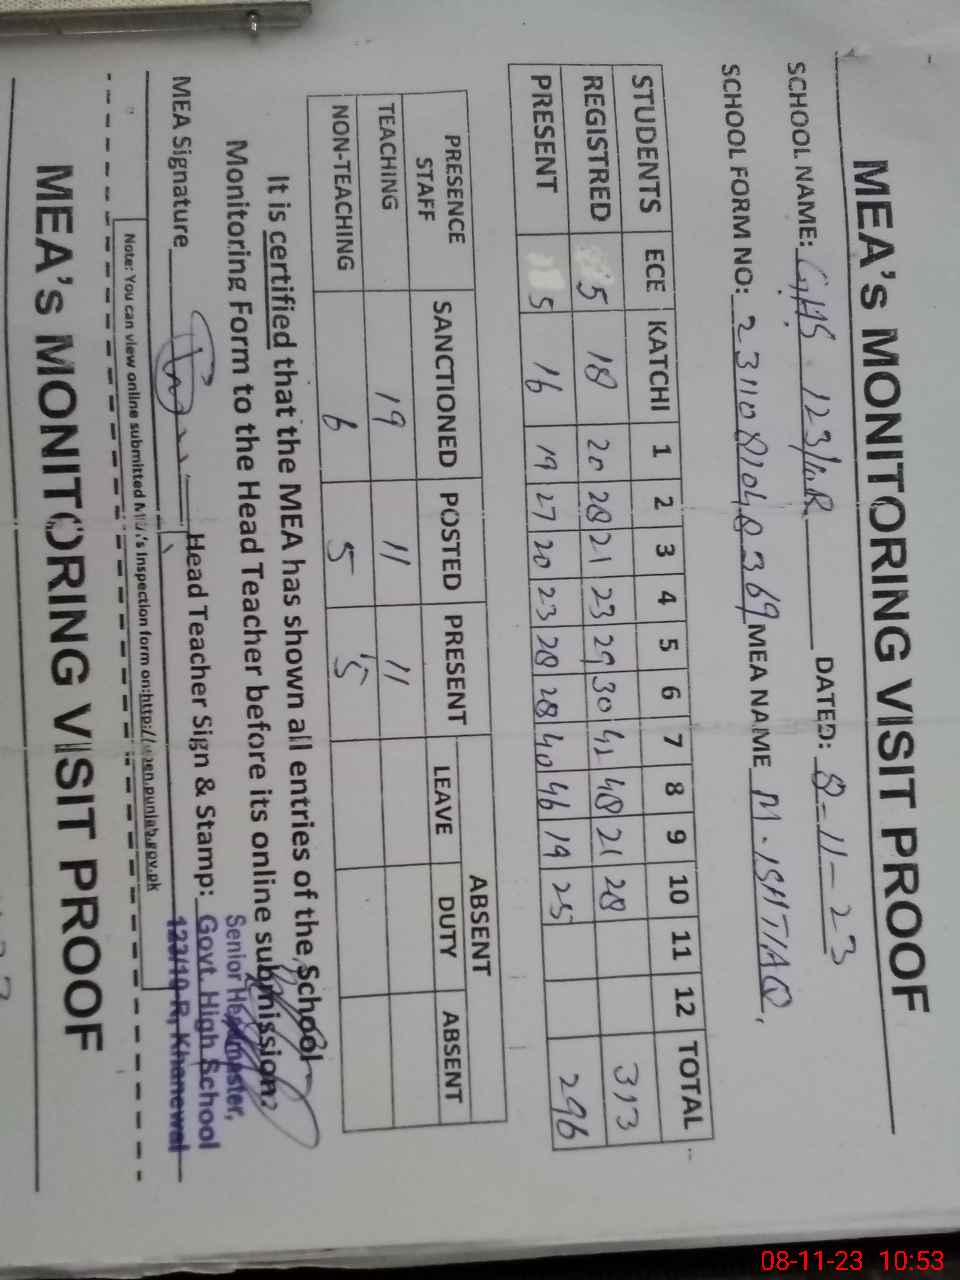 MEA's MONITORING VISIT PROOF
SCHOOL NAME: GHS 123/10R DATED: 8-11-23
SCHOOL FORM NO: 2311081048369 MEA NAME M. ISHTIAQ.
STUDENTS ECE KATCHI 1 2 3 4 5 6 7 8 9 10 11 12 TOTAL
REGISTRED 5 18 20 28 21 23 29 30 41 48 21 28 313
PRESENT 5 16 19 27 20 23 28 28 40 46 19 25 296
PRESENCE STAFF SANCTIONED POSTED PRESENT ABSENT
LEAVE DUTY ABSENT
TEACHING 19 11 11
NON-TEACHING 6 5 5
It is certified that the MEA has shown all entries of the School
Monitoring Form to the Head Teacher before its online submission.
Senior Headmaster,
MEA Signature Head Teacher Sign & Stamp: Govt. High School
123/10-R, Khanewal
Note: You can view online submitted MEA's Inspection form on:http://open.punjab.gov.pk
MEA's MONITORING VISIT PROOF
08-11-23 10:53